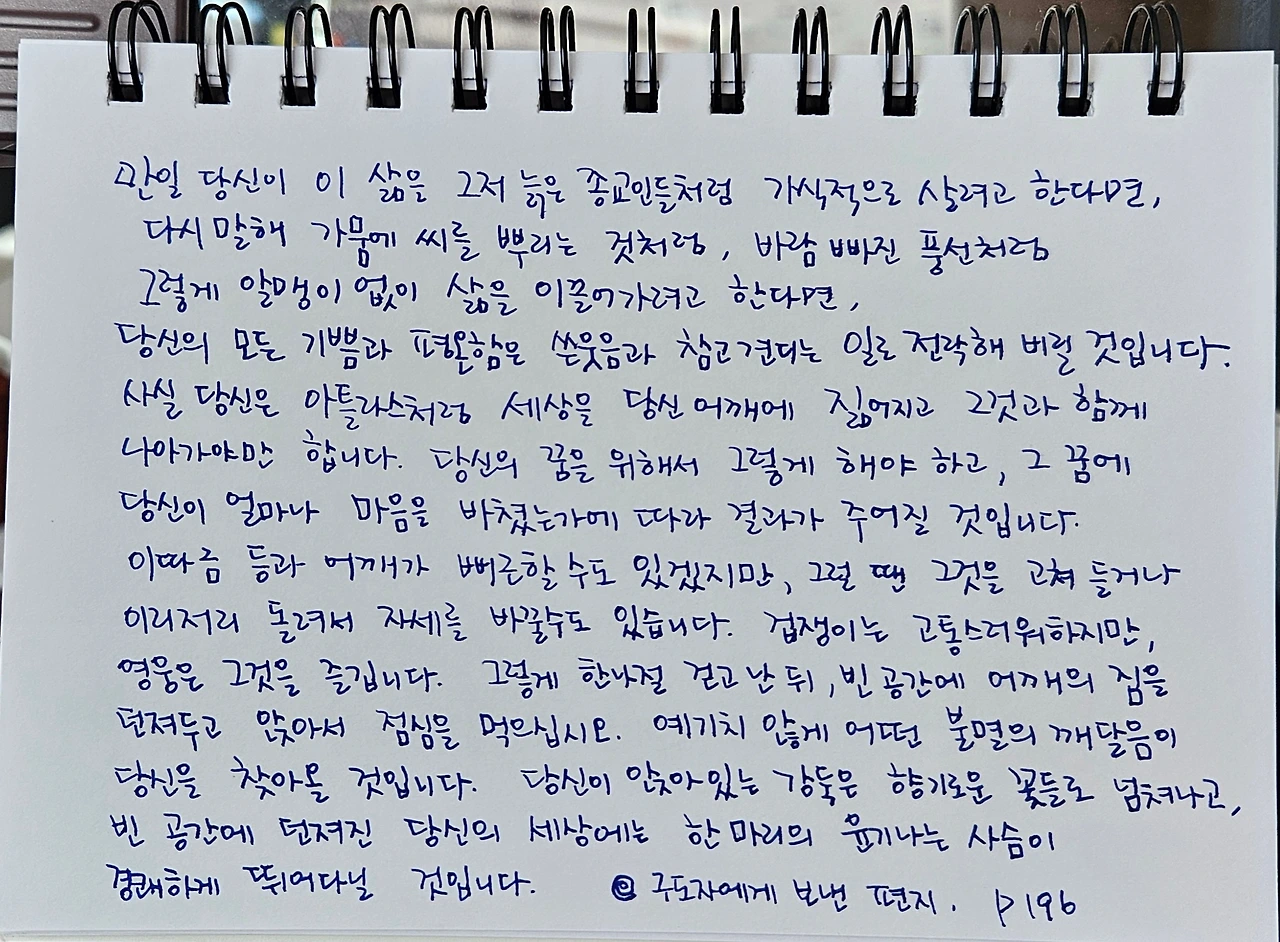 만일 당신이 이 삶을 그저 늙은 종교인들처럼 가식적으로 살려고 한다면,
다시말해 가뭄에 씨를 뿌리는 것처럼, 바람 빠진 풍선처럼
그렇게 알맹이 없이 삶을 이끌어가려고 한다면,
당신의 모든 기쁨과 평온함은 쓴웃음과 참고견디는 일로 전락해 버릴 것입니다.
사실 당신은 아틀라스처럼 세상을 당신 어깨에 짊어지고 그것과 함께
나아가야만 합니다. 당신의 꿈을 위해서 그렇게 해야 하고, 그 꿈에
당신이 얼마나 마음을 바쳤는가에 따라 결과가 주어질 것입니다.
이따금 등과 어깨가 뻐근할 수도 있겠지만, 그럴 땐 그것을 고쳐 들거나
이리저리 돌려서 자세를 바꿀수도 있습니다. 겁쟁이는 고통스러워하지만,
영웅은 그것을 즐깁니다. 그렇게 한나절 걷고 난 뒤, 빈 공간에 어깨의 짐을
던져두고 앉아서 점심을 먹으십시오. 예기치 않게 어떤 불멸의 깨달음이
당신을 찾아올 것입니다. 당신이 앉아있는 강둑은 향기로운 꽃들로 넘쳐나고,
빈 공간에 던져진 당신의 세상에는 한 마리의 윤기나는 사슴이
경쾌하게 뛰어다닐 것입니다. @ 구도자에게 보낸 편지. P196